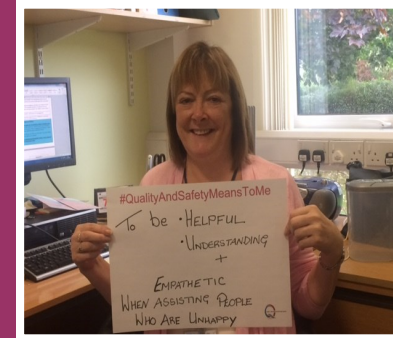 #QualityAndSafetyMeansToMe
To be • HELPFUL
• UNDERSTANDING
+
EMPATHETIC
WHEN ASSISTING PEOPLE
WHO ARE UNHAPPY